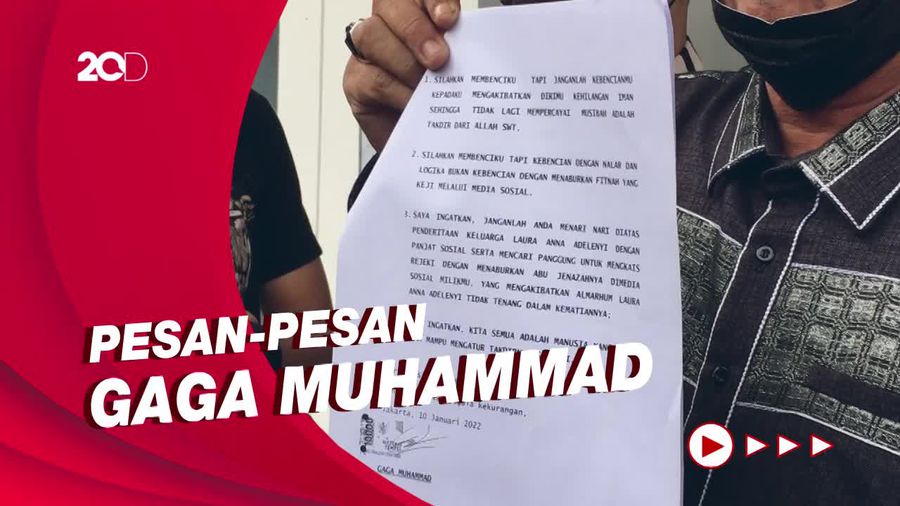 20D
1. SILAHKAN MEMBENCIKU TAPI JANGANLAH KEBENCIANMU
KEPADAKU MENGAKIBATKAN DIRIMU KEHILANGAN IMAN
SEHINGGA TIDAK LAGI MEMPERCAYAI MUSIBAH ADALAH
TAKDIR DARI ALLAH SWT.
2. SILAHKAN MEMBENCIKU TAPI KEBENCIAN DENGAN NALAR DAN
LOGIKA BUKAN KEBENCIAN DENGAN MENABURKAN FITNAH YANG
KEJI MELALUI MEDIA SOSIAL.
3. SAYA INGATKAN, JANGANLAH ANDA MENARI NARI DIATAS
PENDERITAAN KELUARGA LAURA ANNA ADELENYI DENGAN
PANJAT SOSIAL SERTA MENCARI PANGGUNG UNTUK MENGKAIS
REJEKI DENGAN MENABURKAN ABU JENAZAHNYA DIMEDIA
SOSIAL MILIKMU, YANG MENGAKIBATKAN ALMARHUM LAURA
ANNA ADELENYI TIDAK TENANG DALAM KEMATIANNYA;
INGATKAN, KITA SEMUA ADALAH MANUSIA
MAMPU MENGATUR
PESAN-PESAN
GAGA MUHAMMAD
kekurangan,
Jakarta, 10 Januari 2022
10000
GAGA MUHAMMAD